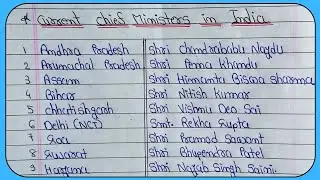 * Current chief Ministers in India
1 Andhra Pradesh Shri Chandrababu Naydu
2 Arunachal Pradesh Shri Pema Khandu
3 Assam Shri Himanta Biswa Sharma
4 Bihar Shri Nitish Kumar
5 Chhattisgarh Shri Vishnu Deo Sai
6 Delhi (NCT) Smt. Rekha Gupta
7 Goa Shri Pramod Sawant
8 Gujarat Shri Bhupendra Patel
9 Haryana Shri Nayab Singh Saini.